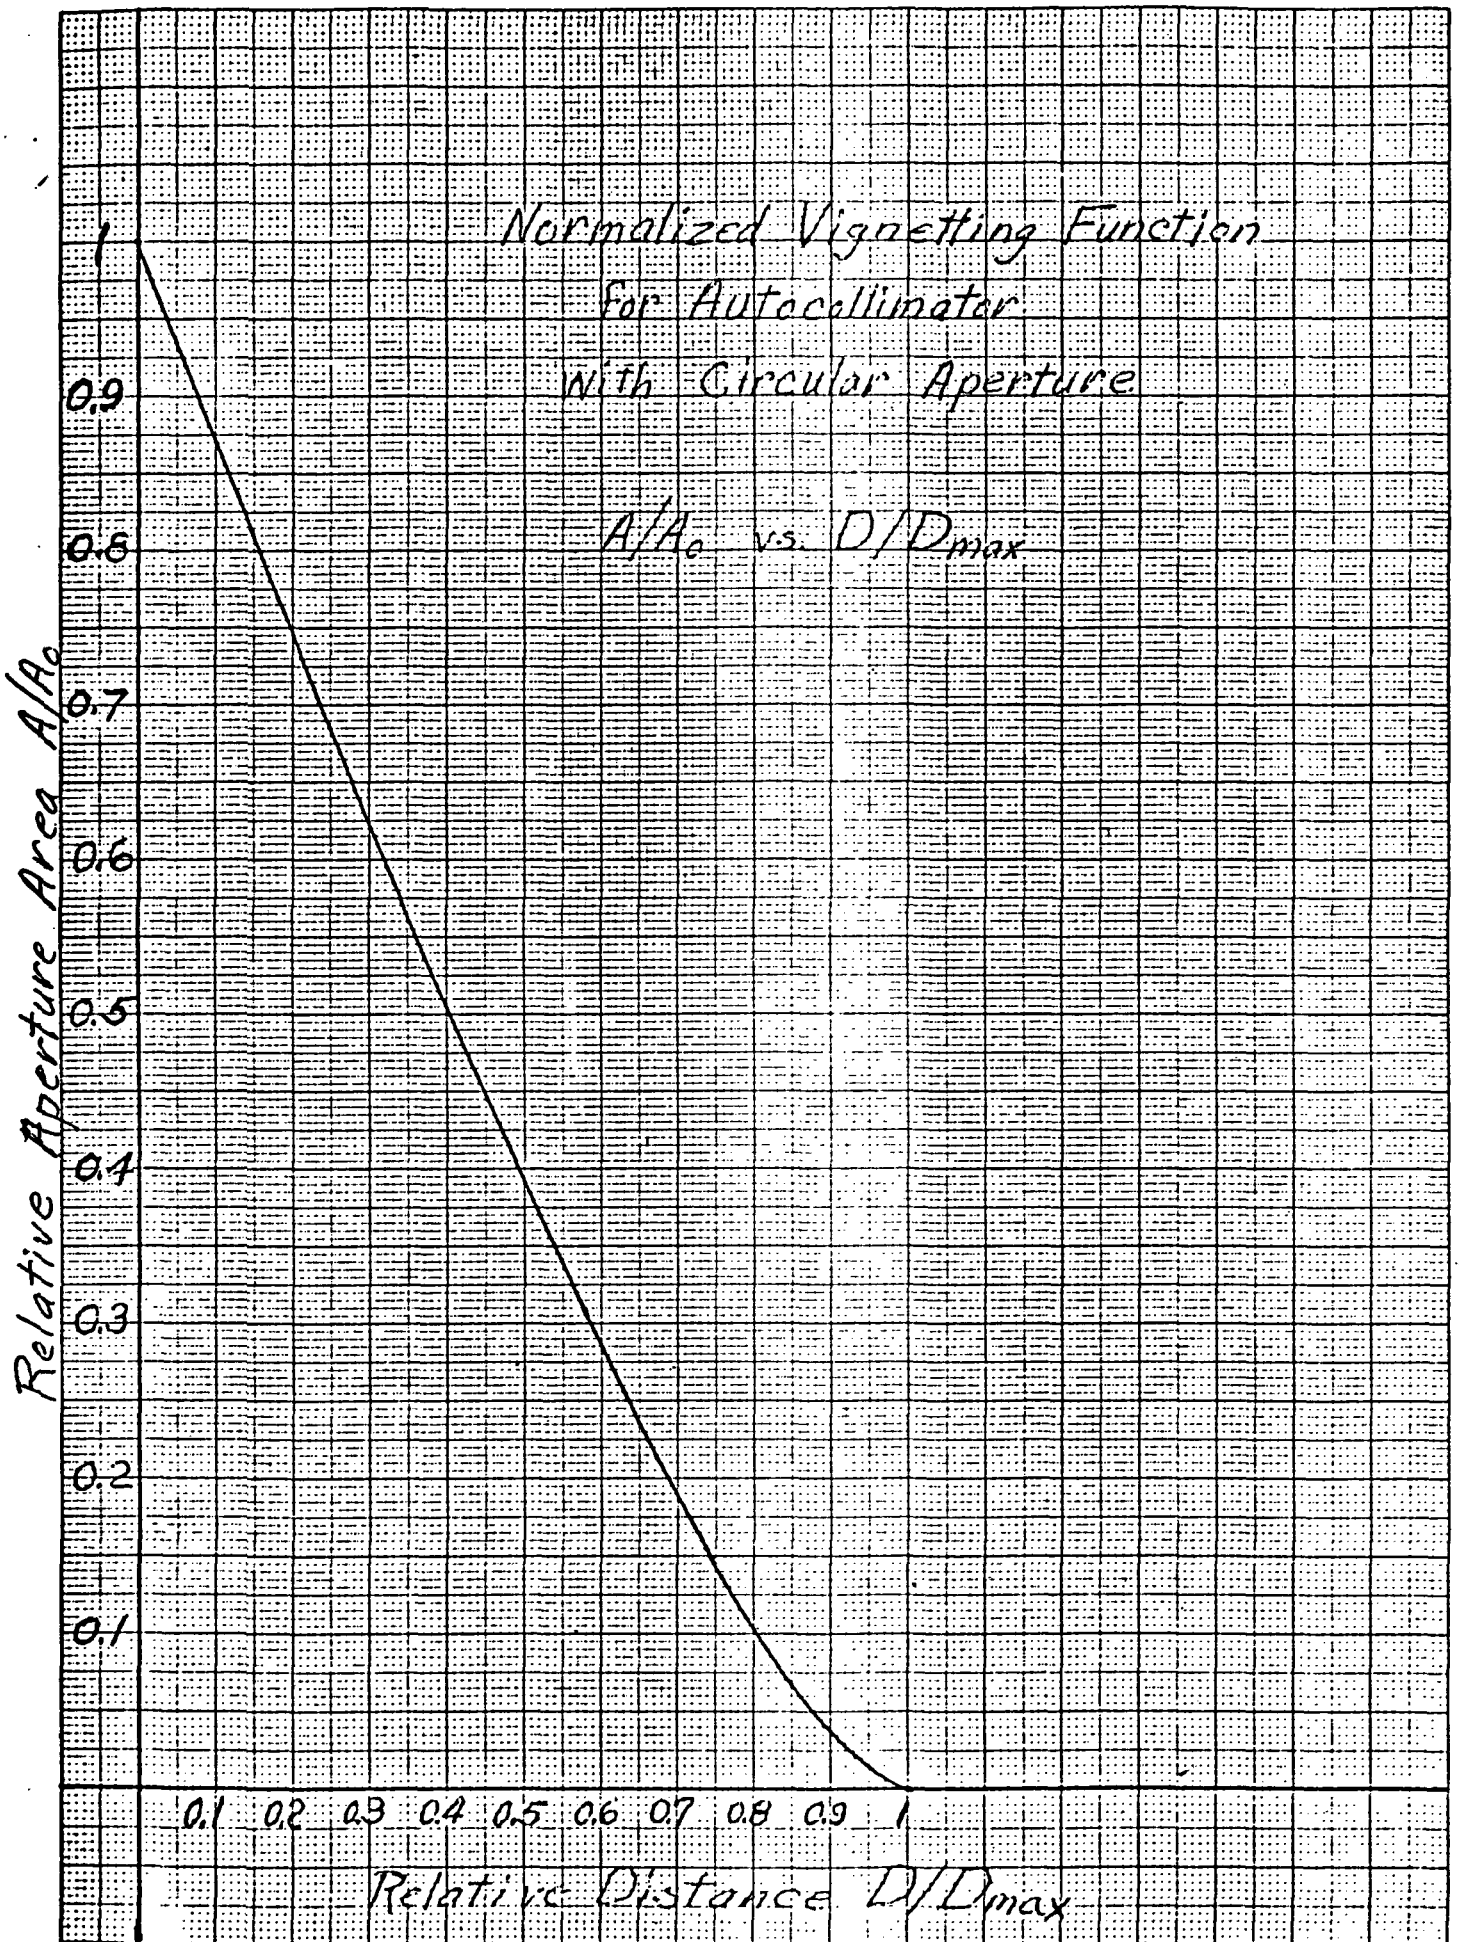 Normalized Vignetting Function
for Autocollimator
with Circular Aperture
A/A₀ vs. D/Dmax
Relative Aperture Area A/A₀
1
0.9
0.8
0.7
0.6
0.5
0.4
0.3
0.2
0.1
0.1 0.2 0.3 0.4 0.5 0.6 0.7 0.8 0.9 1
Relative Distance D/Dmax